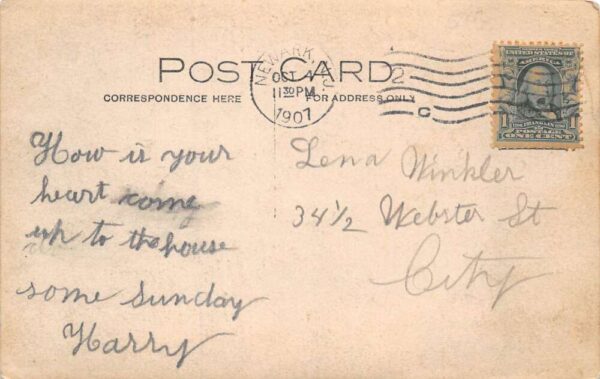 POST CARD
CORRESPONDENCE HERE
FOR ADDRESS ONLY
NEWARK, N.J.
OCT 4
11 30 PM
1907
2
C
UNITED STATES OF
AMERICA
1
FRANKLIN
1
POSTAGE
ONE CENT
How is your
heart come
up to the house
some Sunday
Harry
Lena Winkler
34 1/2 Webster St
City